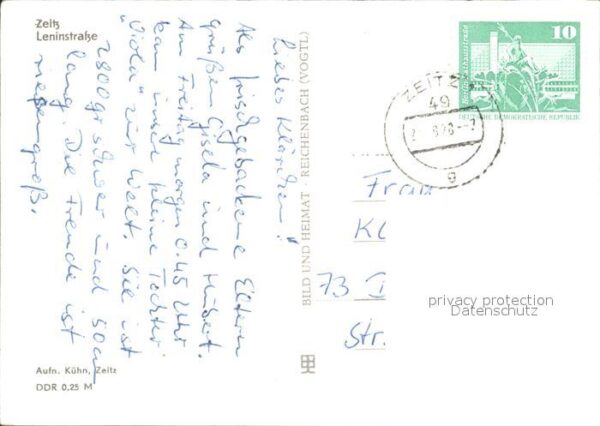 Zeitz
Leninstraße
Liebes Klärchen!
Als frischgebackene Eltern
grüßen Gisela und Hubert.
Am Freitag morgen 0.45 Uhr
kam unsre kleine Tochter
"Viola" zur Welt. Sie ist
2800 gr schwer und 50 cm
lang. Die Freude ist
riesengroß.
Aufn. Kühn, Zeitz
DDR 0,25 M
BILD UND HEIMAT · REICHENBACH (VOGTL)
10
DEUTSCHE DEMOKRATISCHE REPUBLIK
ZEITZ
49
g
Frau
Kl
73
Str.
privacy protection
Datenschutz